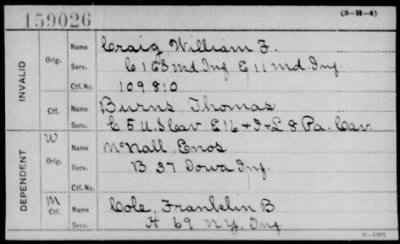 159026
(3-H-4)
INVALID
Orig.
Name Craig, William F.
Serv. C 1 E S Md. Inf E 11 Md. Inf.
Ctf. No. 109810
Ctf.
Name Burns Thomas
Serv. C 5 U.S. Cav E 16 & I & L 8 Pa. Cav.
DEPENDENT
W
Orig.
Name McNall, Enos
Serv. B 37 Iowa Inf.
Ctf. No.
M
Ctf.
Name Cole, Franklin B
Serv. H 69 N.Y. Inf